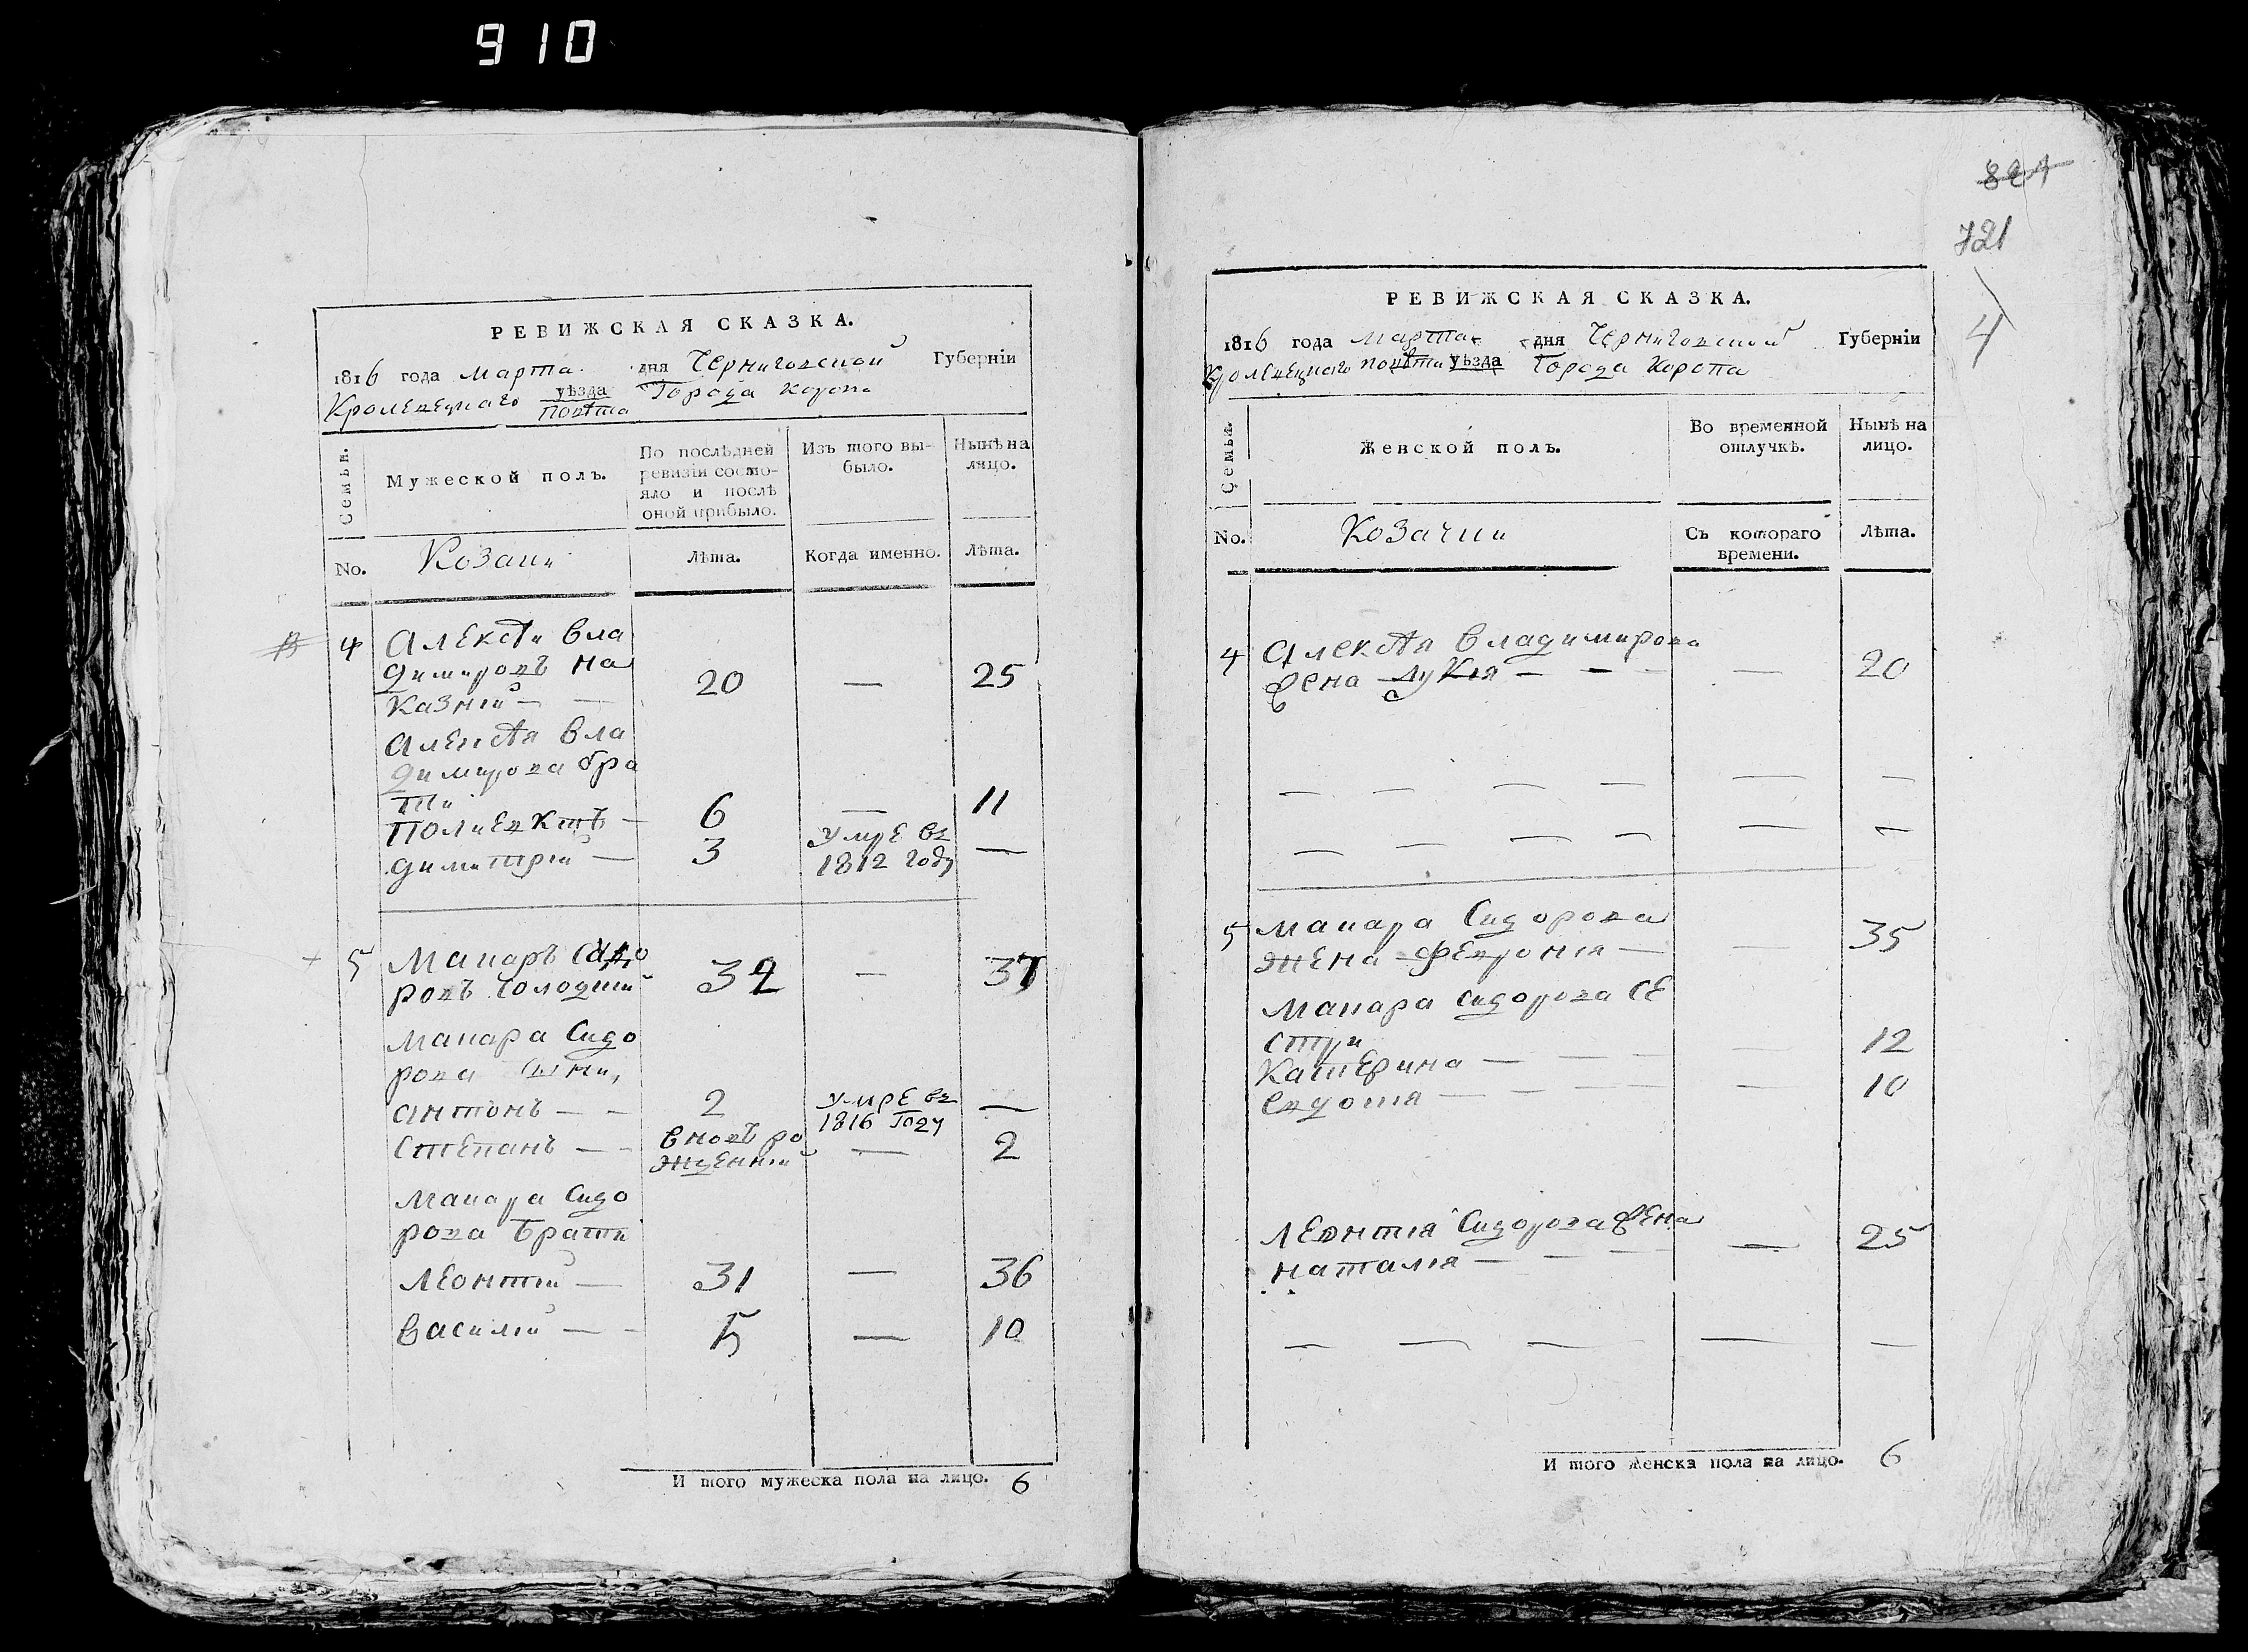 910
РЕВИЖСКАЯ СКАЗКА.
1816 года марта дня Черниговской Губерніи
Кролевецкаго уѣзда повѣта Города Коропа
Семьи.
Мужеской полъ.
По послѣдней
ревизіи состо-
яло и послѣ
оной прибыло.
Изъ того вы-
было.
Нынѣ на
лицо.
No.
Козаки
Лѣта.
Когда именно.
Лѣта.
4 Алексѣи Вла
димировъ На
казній — 20 — 25
Алексѣя Вла
димирова бра
ти
Полиевктъ — 6 — 11
Димитрій — 3 умре въ 1812 году —
5 Макаръ Сидо
ровъ 32 — 37
Макара Сидо
рова сыни,
Антонъ — — 2 умре въ 1816 году —
Степанъ — — вновъ рожденній — 2
Макара Сидо
рова Брати
Леонтій — 31 — 36
Василій — — 5 — 10
И того мужеска пола на лицо. 6
824
721
4
РЕВИЖСКАЯ СКАЗКА.
1816 года марта дня Черниговской Губерніи
Кролевецкаго повѣта уѣзда Города Коропа
Семьи.
Женской полъ.
Во временной
отлучкѣ.
Нынѣ на
лицо.
No.
Козачки
Съ котораго
времени.
Лѣта.
4 Алексѣя Владимирова
жена — — — — 20
— — — — — —
— — — — — —
5 Макара Сидорова
жена Феврония — — 35
Макара Сидорова се
стри
Катерина — — — — 12
Евдокия — — — — 10
Леонтія Сидорова жена
Наталія — — — — 25
— — — — — —
И того женска пола на лицо. 6